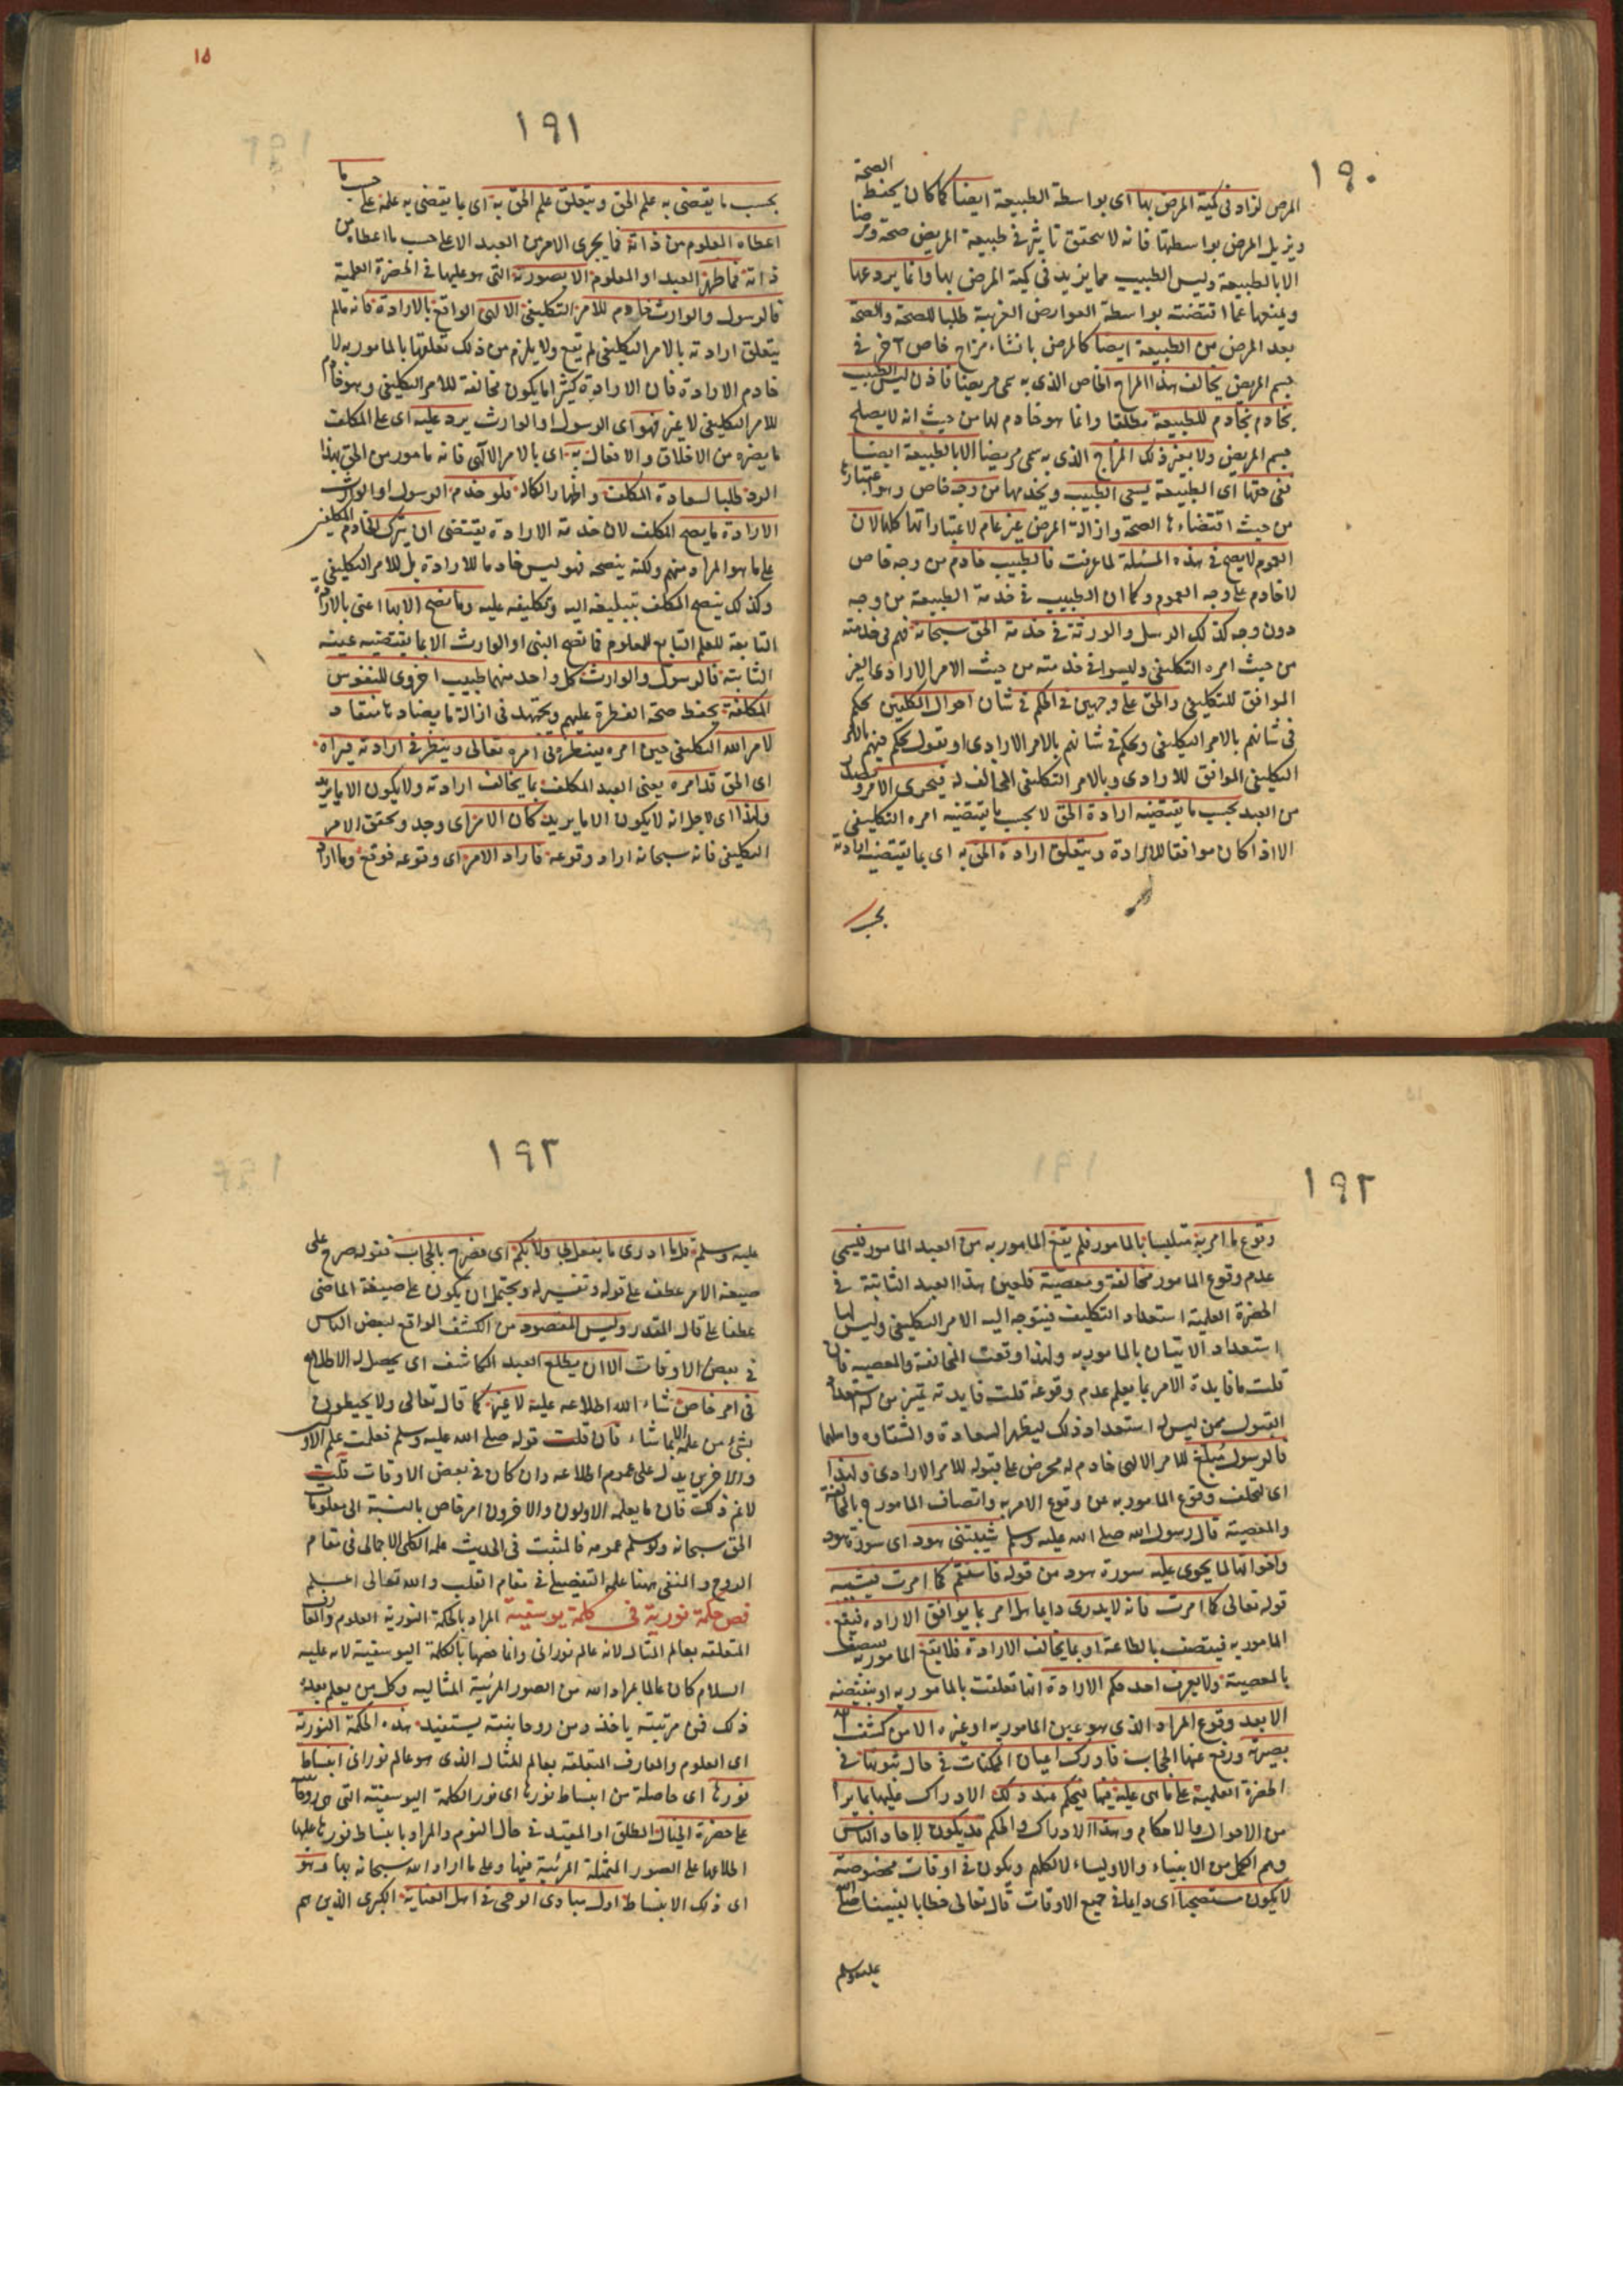 ١٩٠
المرض لزاد فى كمية المرض بها اى بواسطة الطبيعة ايضا كما كان يحفظ الصحة
ويزيل المرض بواسطتها فانه لا يتحقق تاثير فى طبيعة المريض صحة ومرضا
الا بالطبيعة وليس الطبيب مما يزيد فى كمية المرض بها وانما يردعها
ويمنعها عما اقتضته بواسطة العوارض الغريبة طلبا للصحة والصحة
بعد المرض من الطبيعة ايضا كالمرض بانشاء مزاج خاص آخر فى
جسم المريض يخالف هذا المزاج الخاص الذى به سمى مريضا فاذن ليس الطبيب
بخادم بخادم للطبيعة مطلقا وانما هو خادم لها من حيث انه لا يصلح
جسم المريض ولا يغير ذلك المزاج الذى به سمى مريضا الا بالطبيعة ايضا
ففى حقها اى الطبيعة يسعى الطبيب ويخدمها من وجه خاص وهو اعتبارها
من حيث اقتضاءها الصحة وازالة المرض غير عام لاعتباراتها كلها لان
العموم لا يصح فى هذه المسئلة لما عرفت فالطبيب خادم من وجه خاص
لا خادم على وجه العموم وكما ان الطبيب فى خدمة الطبيعة من وجه
دون وجه كذلك الرسل والورثة فى خدمة الحق سبحانه فهم فى خدمته
من حيث امره التكليفى وليسوا فى خدمته من حيث الامر الارادى الغير
الموافق للتكليفى والحق على وجهين فى الحكم فى شان احوال المكلفين يحكم
فى شانهم بالامر التكليفى ويحكم فى شانهم بالامر الارادى او نقول يحكم فيهم بالامر
التكليفى الموافق للارادى وبالامر التكليفى المخالف له فيجرى الامر ويصدر
من العبد بحسب ما يقتضيه ارادة الحق لا بحسب ما يقتضيه امره التكليفى
الا اذا كان موافقا للارادة ويتعلق ارادة الحق به اى بما يقتضيه ارادته
بحسب
١٥
١٩١
بحسب ما يقتضى به علم الحق ويتعلق علم الحق به اى بما يقتضى به علمه على حسب ما
اعطاه المعلوم من ذاته فما يجرى الامر من العبد الا على حسب ما اعطاه من
ذاته فما ظهر العبد او المعلوم الا بصورته التى هو عليها فى الحضرة العلمية
فالرسول والوارث خادم للامر التكليفى الالهى الواقع بالارادة فانه ما لم
يتعلق ارادته بالامر التكليفى لم يقع ولا يلزم من ذلك تعلقها بالمامور به لا
خادم الارادة فان الارادة كثيرا ما يكون مخالفة للامر التكليفى وهو خادم
للامر التكليفى لا غير فهو اى الرسول او الوارث يرد عليه اى على المكلف
ما يضره من الاخلاق والافعال به اى بالامر الالهى فانه مامور من الحق بهذا
الرد طلبا لسعادة المكلف واظهارا لكماله فلو خدم الرسول او الوارث
الارادة ما نصح المكلف لان خدمة الارادة يقتضى ان يترك الخادم المكلفين
على ما هو المراد منهم ولكنه ينصحه فهو ليس خادما للارادة بل للامر التكليفى
وكذلك ينصح المكلف بتبليغه اليه وتكليفه عليه وما نصح الا بها اعنى بالارادة
التابعة للعلم التابع للمعلوم فما نصح النبى او الوارث الا بما يقتضيه عينه
الثابتة فالرسول والوارث كل واحد منهما طبيب اخروى للنفوس
المكلفة يحفظ صحة الفطرة عليهم ويجتهد فى ازالة ما يضادها منقاد
لامر الله التكليفى حين امره فينظر فى امره تعالى وينظر فى ارادته فيراه
اى الحق قد امره يعنى العبد المكلف بما يخالف ارادته ولا يكون الا ما يريد
ولهذا اى لاجل انه لا يكون الا ما يريد كان الامر اى وجد وتحقق الامر
التكليفى فانه سبحانه اراد وقوعه فاراد الامر اى وقوعه فوقع وما اراد
١٩٢
وقوع ما امر به متلبسا بالمامور فلم يقع المامور به من العبد المامور فيسمى
عدم وقوع المامور مخالفة ومعصية فلعين هذا العبد الثابتة فى
الحضرة العلمية استعداد التكليف فيتوجه اليه الامر التكليفى وليس لها
استعداد الاتيان بالمامور به ولهذا وقعت المخالفة والمعصية فان
قلت ما فايدة الامر بما يعلم عدم وقوعه قلت فايدته تميز من له استعداد
القبول ممن ليس له استعداد ذلك ليظهر السعادة والشقاوه واهلها
فالرسول مبلغ للامر الالهى خادم له محرض على قبوله للامر الارادى ولهذا
اى لتخلف وقوع المامور به عن وقوع الامر به واتصاف المامور ح بالمخالفة
والمعصية قال رسول الله صلى الله عليه وسلم شيبتنى هود اى سورة هود
واخواتها لما يحوى عليه سورة هود من قوله فاستقم كما امرت فشيبه
قوله تعالى كما امرت فانه لا يدرى دايما هل امر بما يوافق الارادة فيقع
المامور به فيتصف بالطاعة او بما يخالف الارادة فلا يقع المامور به فيتصف
بالمعصية ولا يعرف احد حكم الارادة انها تعلقت بالمامور به او بنقيضه
الا بعد وقوع المراد الذى هو عين المامور به او غيره الا من كشف الله
بصيرته ورفع عنها الحجاب فادرك اعيان الممكنات فى حال ثبوتها فى
الحضرة العلمية على ما هى عليه فيها فيحكم عند ذلك الادراك عليها بما يراه
من الاحوال والاحكام وهذا الادراك والحكم قد يكون لاحاد الناس
وهم الكمل من الانبياء والاولياء لا لكلهم ويكون فى اوقات مخصوصة
لا يكون مستصحبا اى دايما فى جميع الاوقات قال تعالى خطابا لنبينا صلى الله
عليه وسلم
١٩٣
عليه وسلم قل ما ادرى ما يفعل بى ولا بكم اى فصرح بالحجاب فقوله صرح على
صيغة الامر عطف على قوله وتفسير له ويحتمل ان يكون على صيغة الماضى
عطفا على قال المقدر وليس المقصود من الكشف الواقع لبعض الناس
فى بعض الاوقات الا ان يطلع العبد المكاشف اى يحصل له الاطلاع
فى امر خاص شاء الله اطلاعه عليه لا غير كما قال تعالى ولا يحيطون
بشئ من علمه الا بما شاء فان قلت قوله صلى الله عليه وسلم فعلمت علم الاولين
والاخرين يدل على عموم اطلاعه وان كان فى بعض الاوقات قلت
لا نم ذلك فان ما يعلمه الاولون والاخرون امر خاص بالنسبة الى معلومات
الحق سبحانه ولو سلم عمومه فالمثبت فى الحديث علمه الكلى الاجمالى فى مقام
الروح والمنفى ههنا علمه التفصيلى فى مقام القلب والله تعالى اعلم
فص حكمة نورية فى كلمة يوسفية المراد بالحكمة النورية العلوم والمعارف
المتعلقة بعالم المثال لانه عالم نورانى وانما خصها بالكلمة اليوسفية لانه عليه
السلام كان عالما بمراد الله من الصور المرئية المثاليه وكل من يعلم بعده
ذلك فمن مرتبته ياخذ ومن روحانيته يستفيد هذه الحكمة النورية
اى العلوم والمعارف المتعلقة بعالم المثال الذى هو عالم نورانى انبساط
نورها اى حاصلة من انبساط نورها اى نور الكلمة اليوسفية التى هى روحها
على حضرة الخيال المطلق او المقيد فى حال النوم والمراد بانبساط نورها عليها
اطلاعها على الصور المتمثلة المرئية فيها وعلى ما اراد الله سبحانه بها وهو
اى ذلك الانبساط اول مبادى الوحى فى اهل العناية الكبرى الذين هم